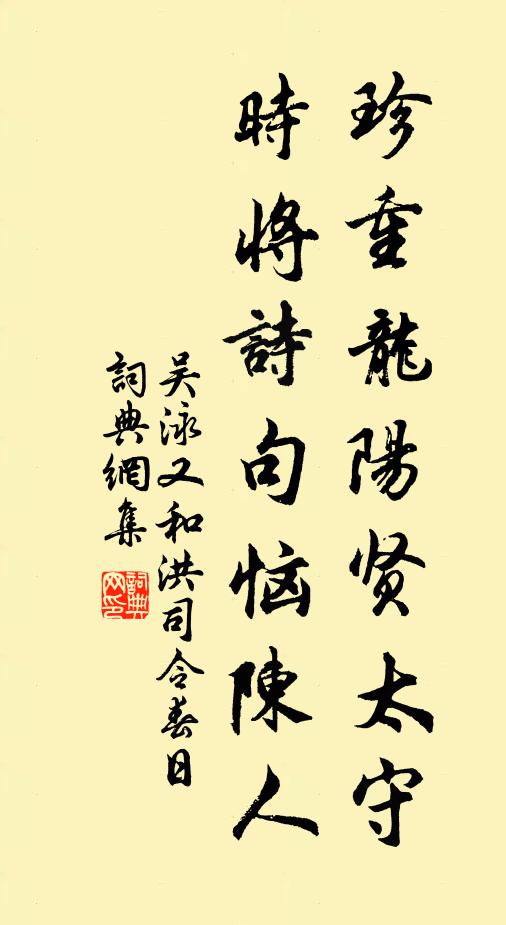 珍重龍陽贤太守
時將詩句恼陳人
吴泳又和洪司令春日
詞典網集
詞典
网印